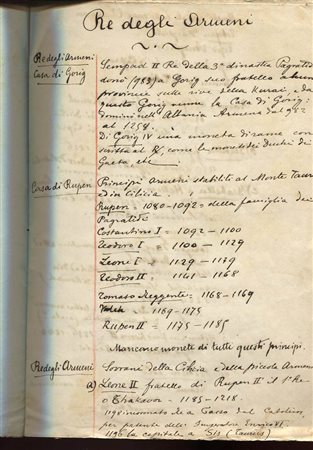 Re degli Armeni
Re degli Armeni
Casa di Gorig
Sempad II Re della 3ª dinastia Pagratide
donò (982) a Gorig suo fratello alcune
provincie sulle rive della Kurai, e da
questo Gorig venne la Casa di Gorig:
dominò nell'Albania Armena dal 982
al 1259.
Di Gorig IV una moneta di rame con
scritta al R, come le monete dei Duchi di
Gaeta, etc
Casa di Rupen
Principi Armeni stabiliti al Monte Tauro
ed in Cilicia
Rupen = 1080-1092 = della famiglia dei
Pagratidi
Costantino I = 1092-1100
Teodoro I = 1100-1129
Leone I = 1129-1139
Teodoro II = 1141-1168
Tomaso Reggente = 1168-1169
= 1169-1175
Rupen II = 1175-1185
Mancano monete di tutti questi principi.
Re degli Armeni
Sovrani della Cilicia e della piccola Armenia
a) Leone II fratello di Rupen II il 1º Re
o Thakavor = 1185-1218.
1198 incoronato Re a Tarso dal Catolicos,
per patente dell' Imperatore Enrico VI.
la capitale a Sis (Taurus)